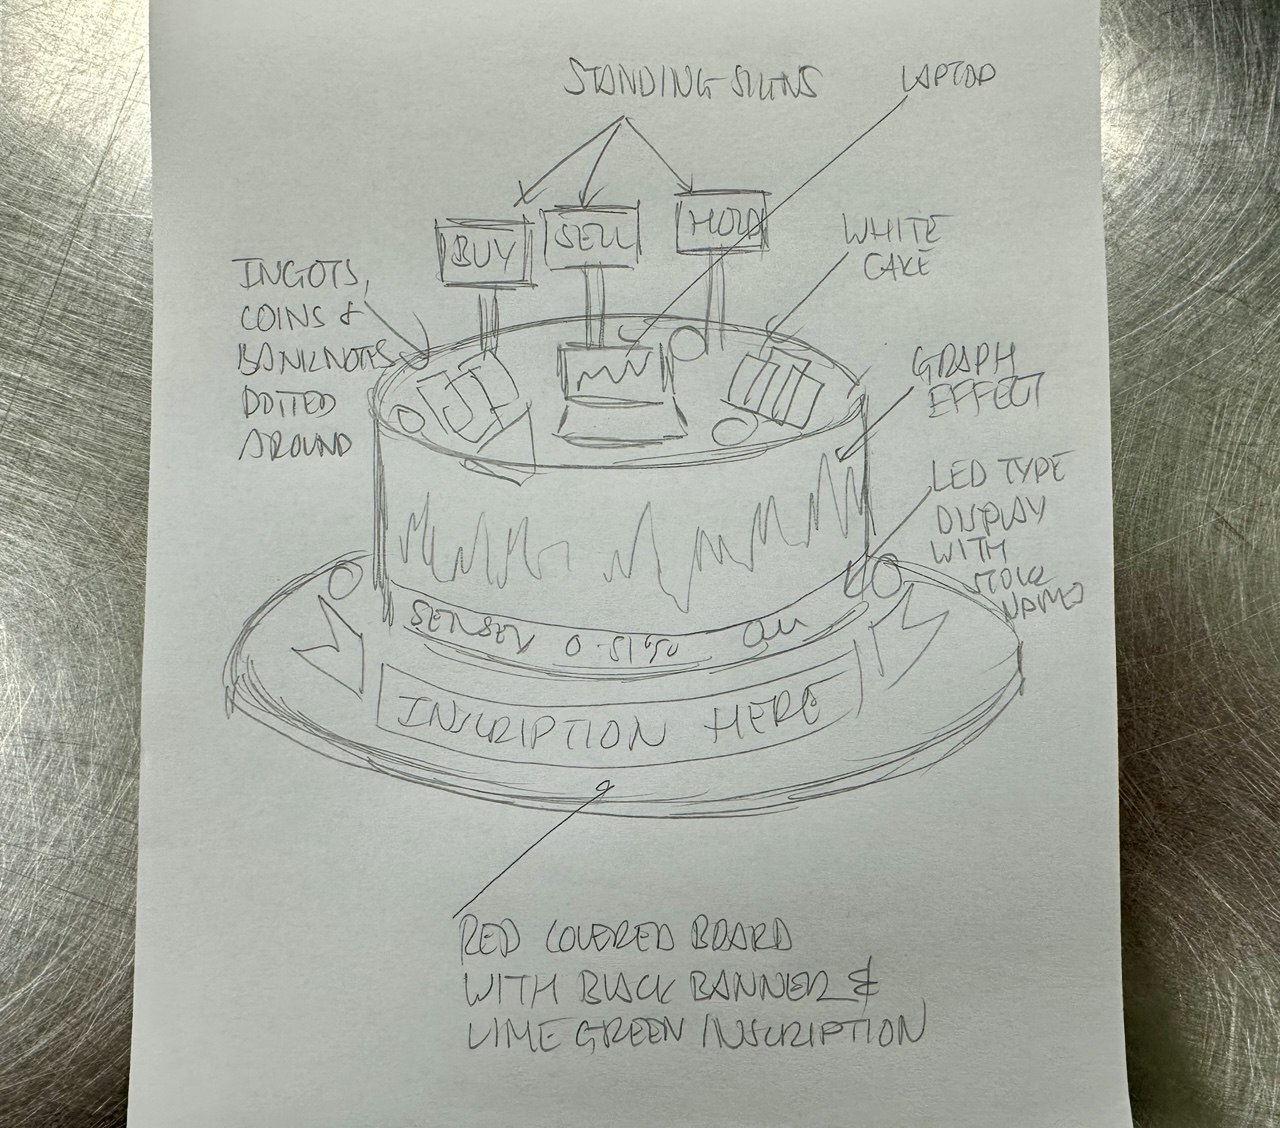 STANDING SIGNS
LAPTOP
BUY
SELL
HOLD
WHITE
CAKE
INGOTS,
COINS &
BANKNOTES
DOTTED
AROUND
GRAPH
EFFECT
LED TYPE
DISPLAY
WITH
STOCK
NAMES
SENSEX
INSCRIPTION HERE
RED COVERED BOARD
WITH BLACK BANNER &
LIME GREEN INSCRIPTION